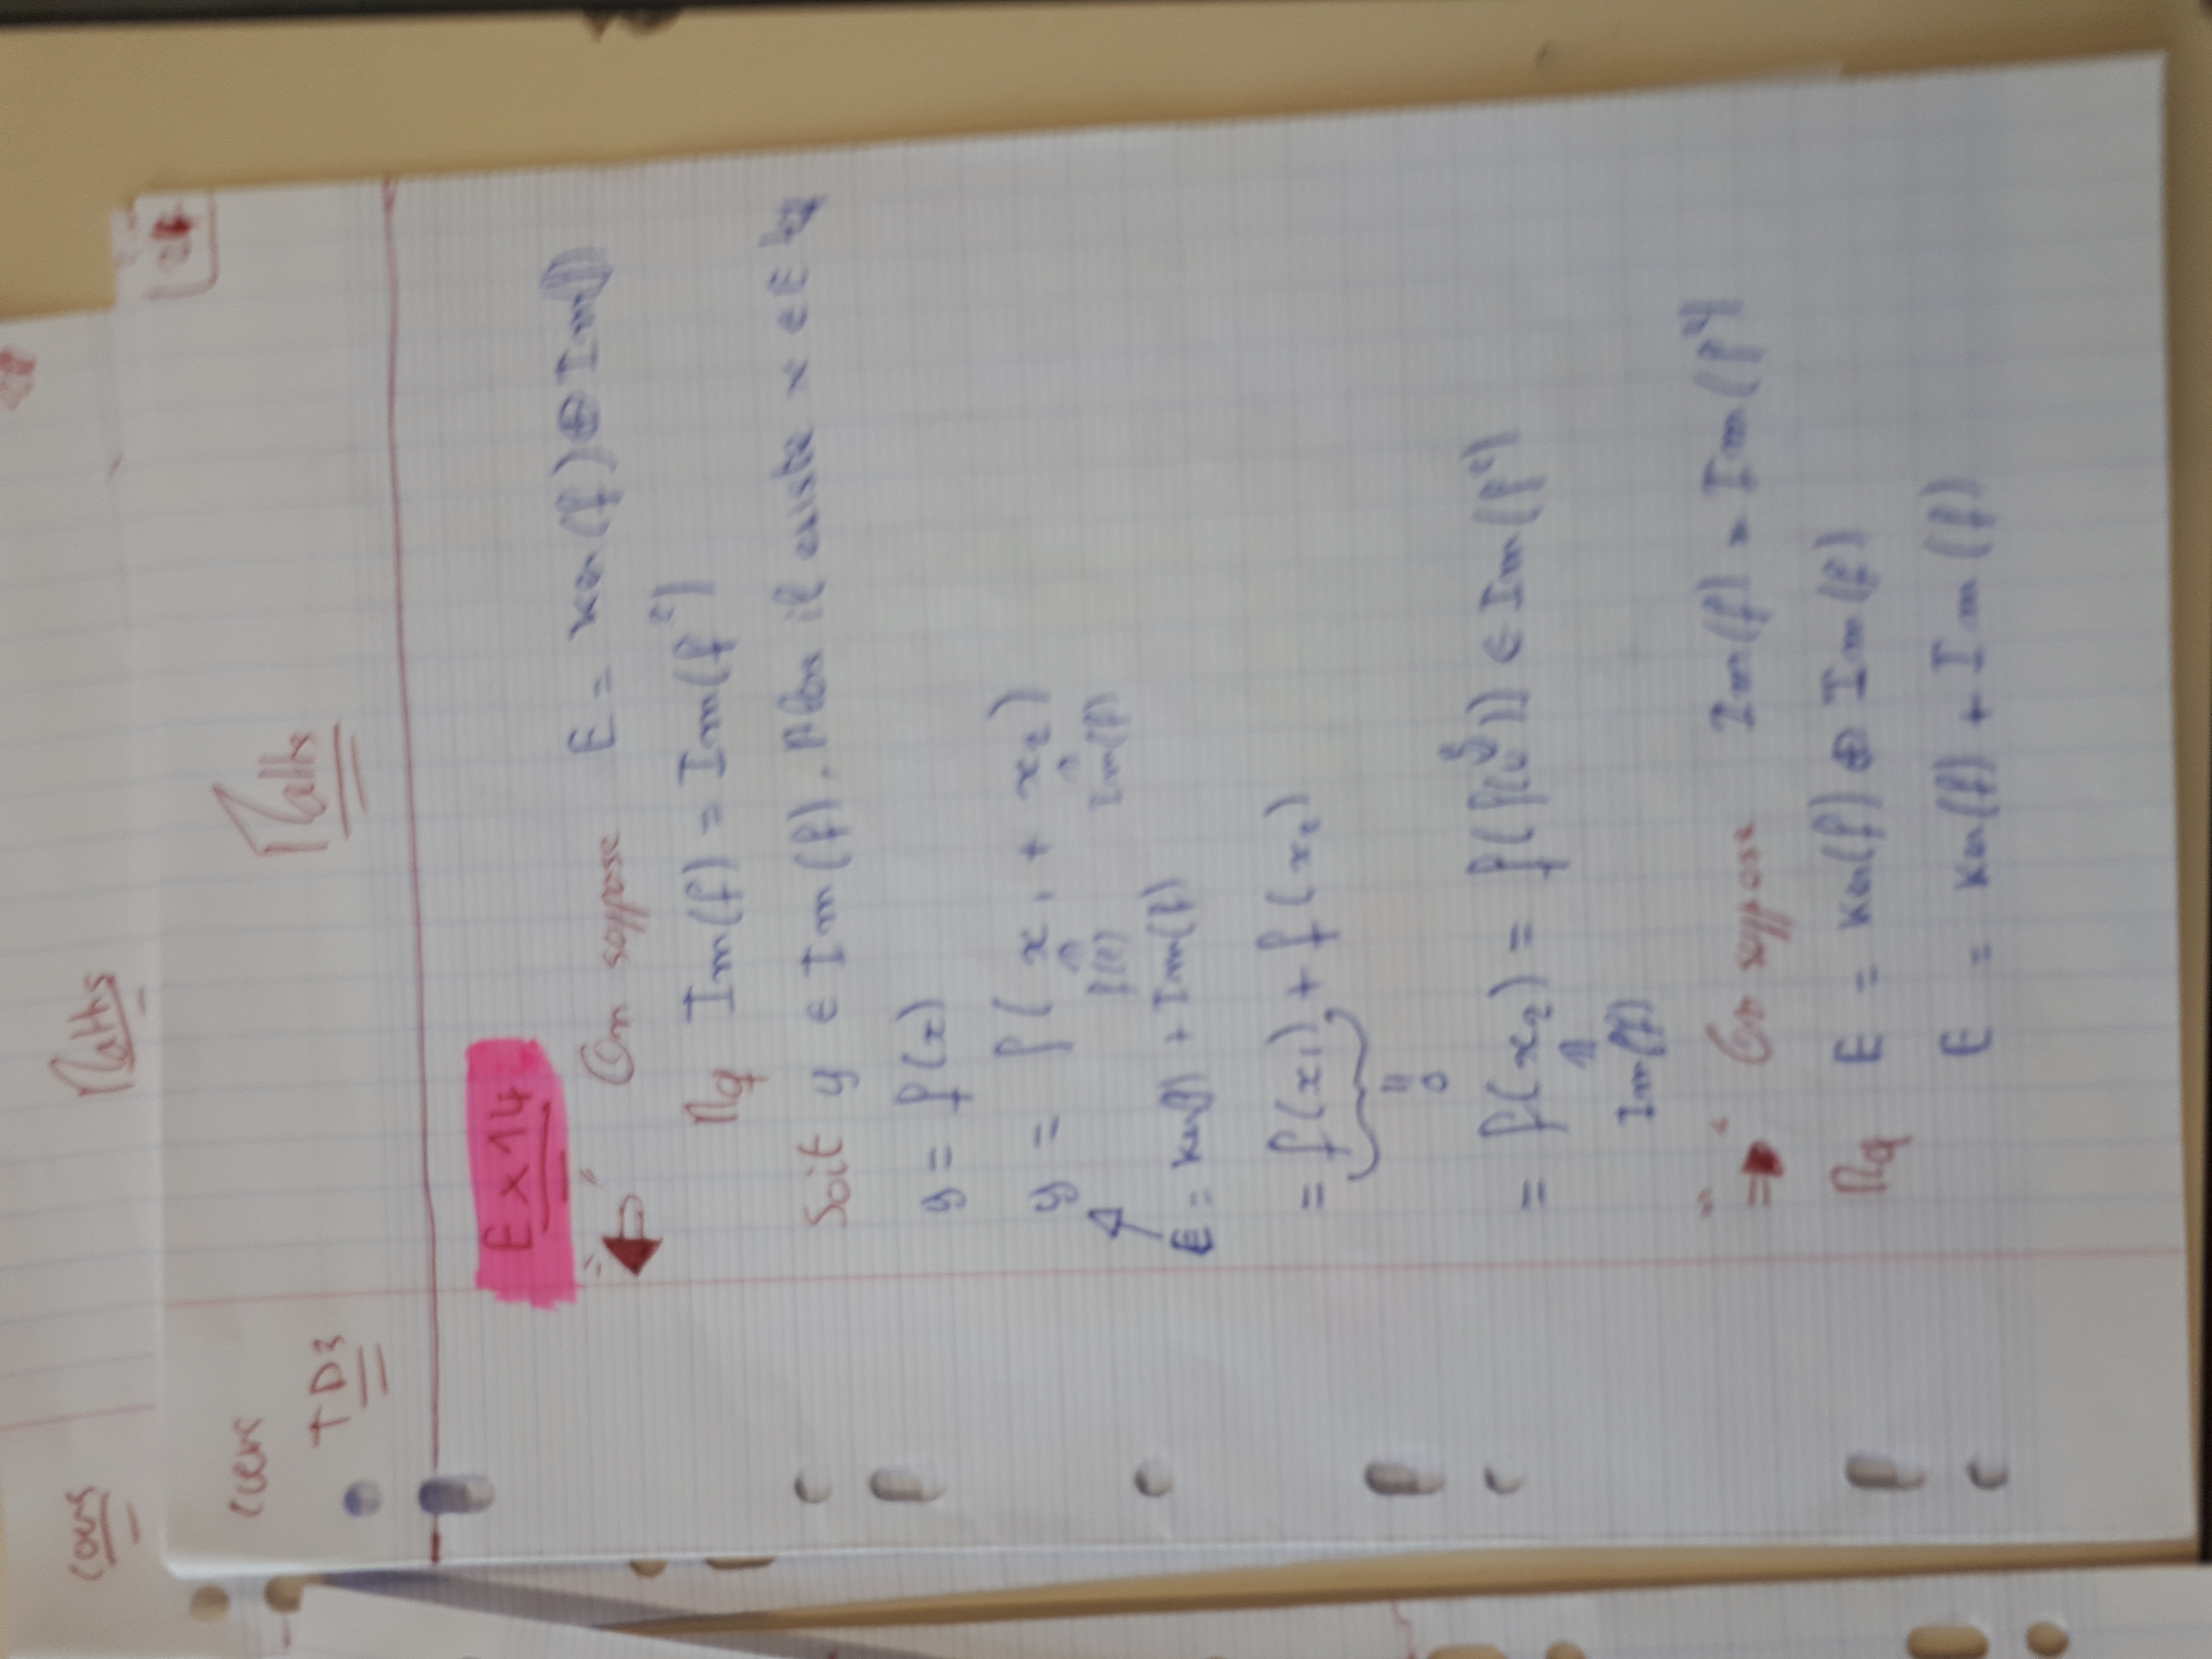 Maths
Cours
Maths
TD3
Ex 14
"⇐" On suppose E = Ker(f) ⊕ Im(f)
Mq Im(f) = Im(f²)
Soit y ∈ Im(f). Alors il existe x ∈ E tq
y = f(x)
y = f( x₁ + x₂ )
∩ ∩
Im(f)
E = Ker(f) + Im(f)
= f(x₁) + f(x₂)
"
0
= f(x₂) = f(f( )) ∈ Im(f²)
Im(f)
"⇒" On suppose Im(f) = Im(f²)
Mq E = Ker(f) ⊕ Im(f)
E = Ker(f) + Im(f)